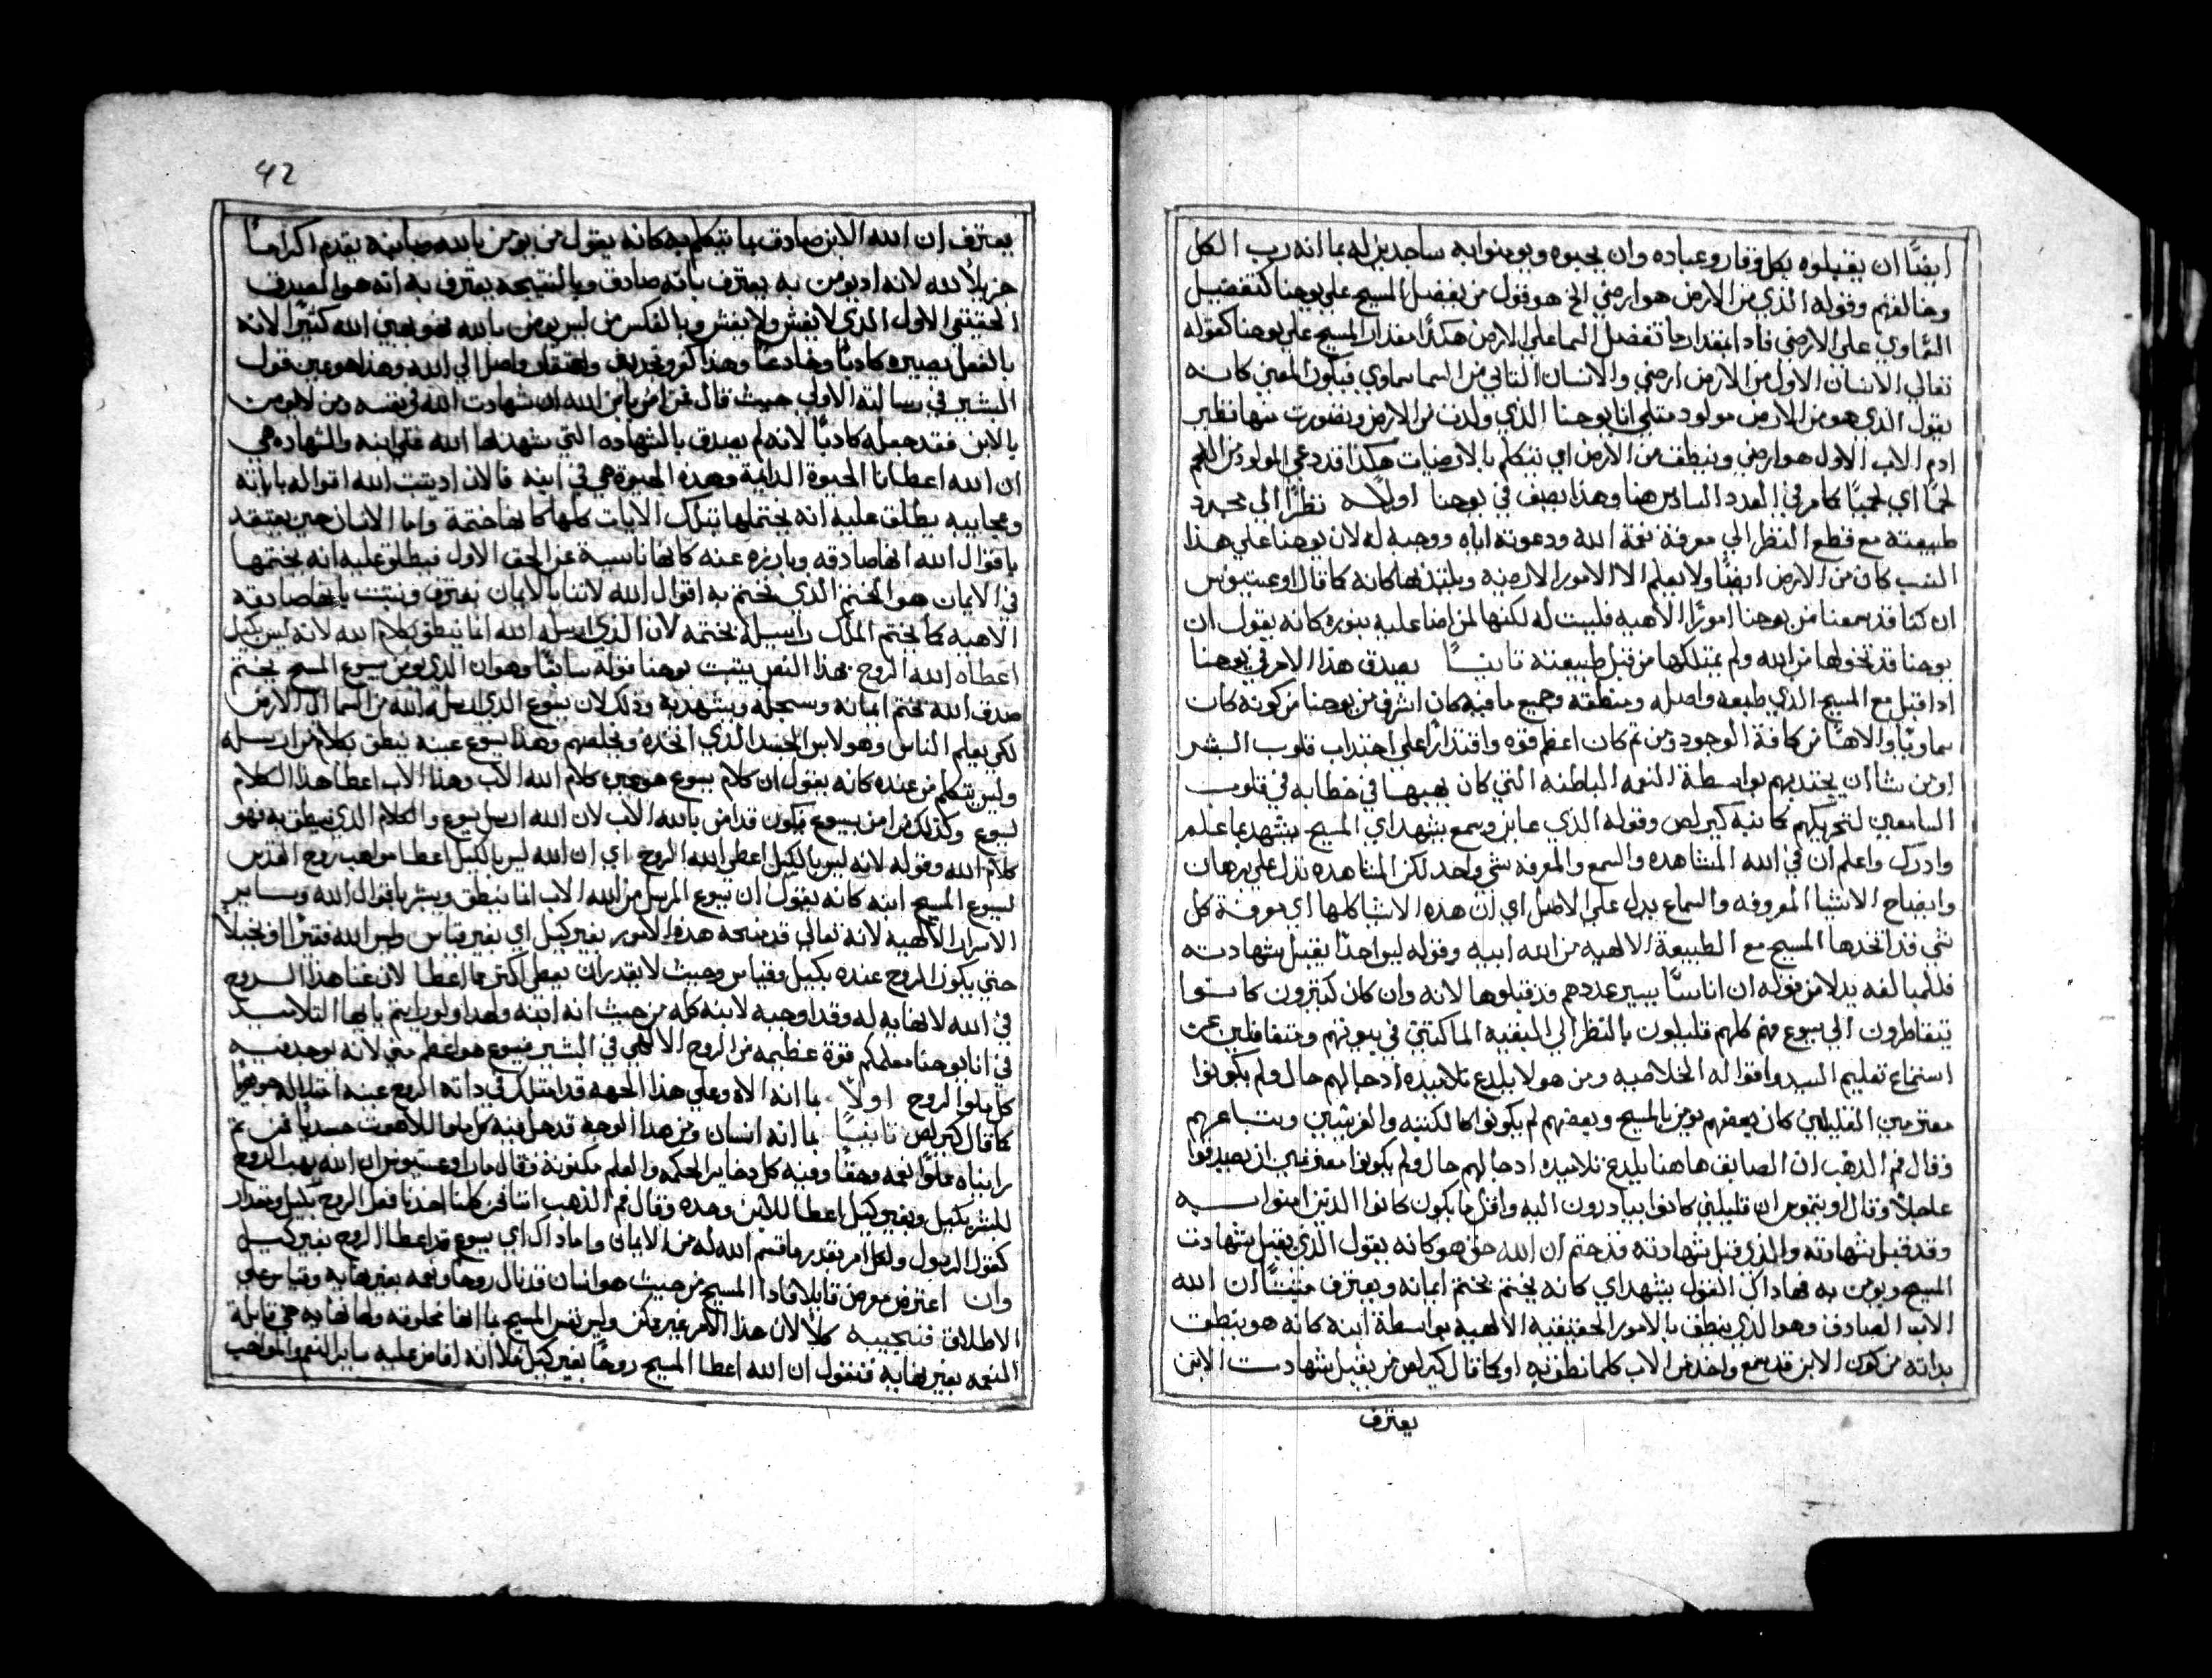 ايضًا ان يقبلوه بكل وقار وعباده وان يحبوه ويومنوا به ساجدين له بما انه رب الكل
وخالقهم وقوله الذي من الارض هو ارضي الخ هو قول من يفضل المسيح علي يوحنا كتفضيل
السماوي علي الارضي فادا بمقدار ما تفضل السما علي الارض هكذا مقدار المسيح علي يوحنا كقوله
تعالي الانسان الاول من الارض ارضي والانسان التاني من السما سماوي فيكون المعني كانه
يقول الذي هو من الارض مولود متلي انا يوحنا الذي ولدت من الارض وتصورت منها نظير
ادم الاب الاول هو ارضي وينطق من الارض اي يتكلم بالارضيات هكذا قد دعي المولود من اللحم
لحمًا اي لحميًا كما مر في العدد السادس هنا وهذا يصف في يوحنا اولًا نظرًا الي مجرد
طبيعته مع قطع النظر الي معرفة نعمة الله ودعوته اياه ووحيه له لان يوحنا علي هذا
النسب كان من الارض ايضًا ولا يعلم الا الامور الارضيه ويلتذ بها كانه كما قال اوغستينوس
ان كنا قد سمعنا من يوحنا امورًا الاهيه فليست له لكنها لمن اضا عليه بنوره كانه يقول ان
يوحنا قد تخولها من الله ولم يمتلكها من قبل طبيعته تانيًا يصدق هذا الامر في يوحنا
ادا قبل مع المسيح الذي طبعه واصله ومنطقه وجميع ما فيه كان اشرف من يوحنا من كونه كان
سماويًا والاهيًا من كافة الوجود ومن تم كان اعظم قوه واقتدارًا علي اجتداب قلوب البشر
او من شا ان يجتديهم بواسطة النعمه الباطنه التي كان يهبها في خطابه في قلوب
السامعين لتحريكهم كما نبه كيرلص وقوله الذي عاين وسمع يشهد اي المسيح يشهد بما علم
وادرك واعلم ان في الله المشاهده والسمع والمعرفه شي واحد لكن المشاهده تدل علي برهان
وايضاح الاشيا المعروفه والسماع يدل علي الاصل اي ان هذه الاشيا كلها اي معرفة كل
شي قد اتخدها المسيح مع الطبيعة الالهيه من الله ابيه وقوله ليس احدًا يقبل شهادته
فللمبالغه بدلا من قوله ان اناسًا يسير عددهم قد قبلوها لانه وان كان كتيرون كانوا
يتقاطرون الي يسوع فهم كلهم قليلون بالنظر الي البقيه الماكتين في بيوتهم ومتغافلين عن
استماع تعليم السيد واقواله الخلاصيه ومن هولا يلدع تلاميذه ادحا لهم حال ولم يكونوا
معتزمين القليلين كان بعضهم يومن بالمسيح وبعضهم لم يكونوا كالكتبه والفريسيين وتباعهم
وقال فم الدهب ان الصابغ هاهنا يلدع تلاميده ادحا لهم حال ولم يكونوا معتزمين ان يصدقوا
عاجلًا وقال اوتيموس ان قليلين كانوا يبادرون اليه واقل ما يكون كانوا الذين امنوا به
وقد قبل شهادته والذي قبل شهادته قد ختم ان الله حق هو كانه يقول الذي يقبل شهادت
المسيح ويومن به فهاداك القول يشهد اي كانه يختم بختم ايمانه ويعترف متبتًا ان الله
الاب الصادق وهو الذي ينطق بالامور الحقيقيه الالهيه بواسطة ابنه كانه هو ينطق
بداته من كون الابن قد سمع واخد من الاب كلما نطق به او كما قال كيرلص من يقبل شهادت الابن
يعترف
42
يعترف ان الله الابن صادق بما يتكلم به كانه يقول من يومن بابنه يقدم اكرامًا
جزيلًا لله لانه اد يومن به يعترف بانه صادق وبالنتيجه يعترف به انه هو الصدق
الحقيقي الاول الذي لا يغش ولا يغش وبالعكس من ليس يومن بالله فهو يهين الله كتيرًا لانه
بالفعل يصيره كادبًا وخادعًا وهذا كفر وتجديف واحتقار واصل الي الله وهذا هو عين قول
البشير في رسالته الاولي حيث قال من امن بابن الله ان شهادت الله في نفسه ومن لا يومن
بالابن فقد جعله كادبًا لانه لم يصدق بالشهاده التي شهدها الله علي ابنه والشهاده هي
ان الله اعطانا الحيوة الدايمة وهذه الحيوة هي في ابنه فالان اد يتبت الله اقواله باياته
وعجايبه يطلق عليه انه يختمها بتلك الايات كلها كانها ختمة واما الانسان حين يعتقد
باقوال الله انها صادقه وبارزه عنه كانها ناسبة عن الحق الاول فيطلق عليه انه يختمها
في الايمان هو الختم الذي يختم به اقوال الله لاننا بالايمان نعترف ونتبت بانها صادقه
الاهيه كما يختم الملك راسيله بختمه لان الذي ارسله الله انما ينطق بكلام الله لانه ليس بكيل
اعطاه الله الروح بهذا النص يتبت يوحنا قوله سابقًا وهو ان الذي يومن بيسوع المسيح يختم
صدق الله بختم ايمانه ويسجله ويشهد به ودلك لان يسوع الذي ارسله الله من السما الي الارض
لكي يعلم الناس وهو لابس الجسد الذي اتخده ويخلصهم وهذا يسوع عينه ينطق بكلام من ارسله
وليس يتكلم من عنده كانه يقول ان كلام يسوع هو عين كلام الله الاب وهذا الاب اعطا هذا الكلام
ليسوع وكذلك من امن بيسوع يكون قد امن بالله الاب لان الله ارسل يسوع والكلام الذي ينطق به فهو
كلام الله وقوله لانه ليس بالكيل اعطي الله الروح اي ان الله ليس بالكيل اعطا مواهب روح القدس
ليسوع المسيح ابنه كانه يقول ان يسوع المرسل من الله الاب انما ينطق ويبشر باقوال الله وساير
الاسرار الالهيه لانه تعالي قد منحه هذه الامور بغير كيل اي بغير قياس وليس الله فقيرًا او بخيلًا
حتي يكون الروح عنده بكيل وقياس وحيث لا يقدر ان يعطي اكتر مما اعطا لان غنا هذا الروح
في الله لا نهايه له وقد اوحيه لابنه كله من حيث انه ابنه ولهدا ولو رايتم يا ايها التلاميد
في انا يوحنا معلمكم قوة عظيمه من الروح الالهي في البشير فيسوع هو اعظم مني لانه يوجد فيه
كل ملو الروح اولًا بما انه الاه وعلي هذا الجهه قد امتلك في داته الروح عينه امتلاكه جوهريًا
كما قال كيرلص تانيًا بما انه انسان ومن هدا الوجه قد حل فيه كل ملو اللاهوت جسديًا فمن تم
رايناه مملوًا نعمه وحقًا وفيه كل دخاير الحكمه والعلم مكنونة وقال مار اوغستينوس ان الله يهب الروح
للبشر بكيل وبغير كيل اعطا للابن وحده وقال فم الذهب اننا نحن كلنا اخدنا فعل الروح بكيل ومقدار
كقول الرسول ولكل امر بقدر ما قسم الله له من الايمان واما داك اي يسوع قد اعطا الروح بغير كيل
وان اعترض معرض قايلا فادا المسيح من حيث هو انسان قد نال روحًا ونعمه بغير نهايه وقياس علي
الاطلاق فنجيبه كلا لان هذا الامر غير ممكن وليس نفس المسيح بما انها مخلوقه ولها نهايه هي قابلة
النعمه بغير نهايه فنقول ان الله اعطا المسيح روحًا بغير كيل انه افاض عليه ساير النعم والمواهب